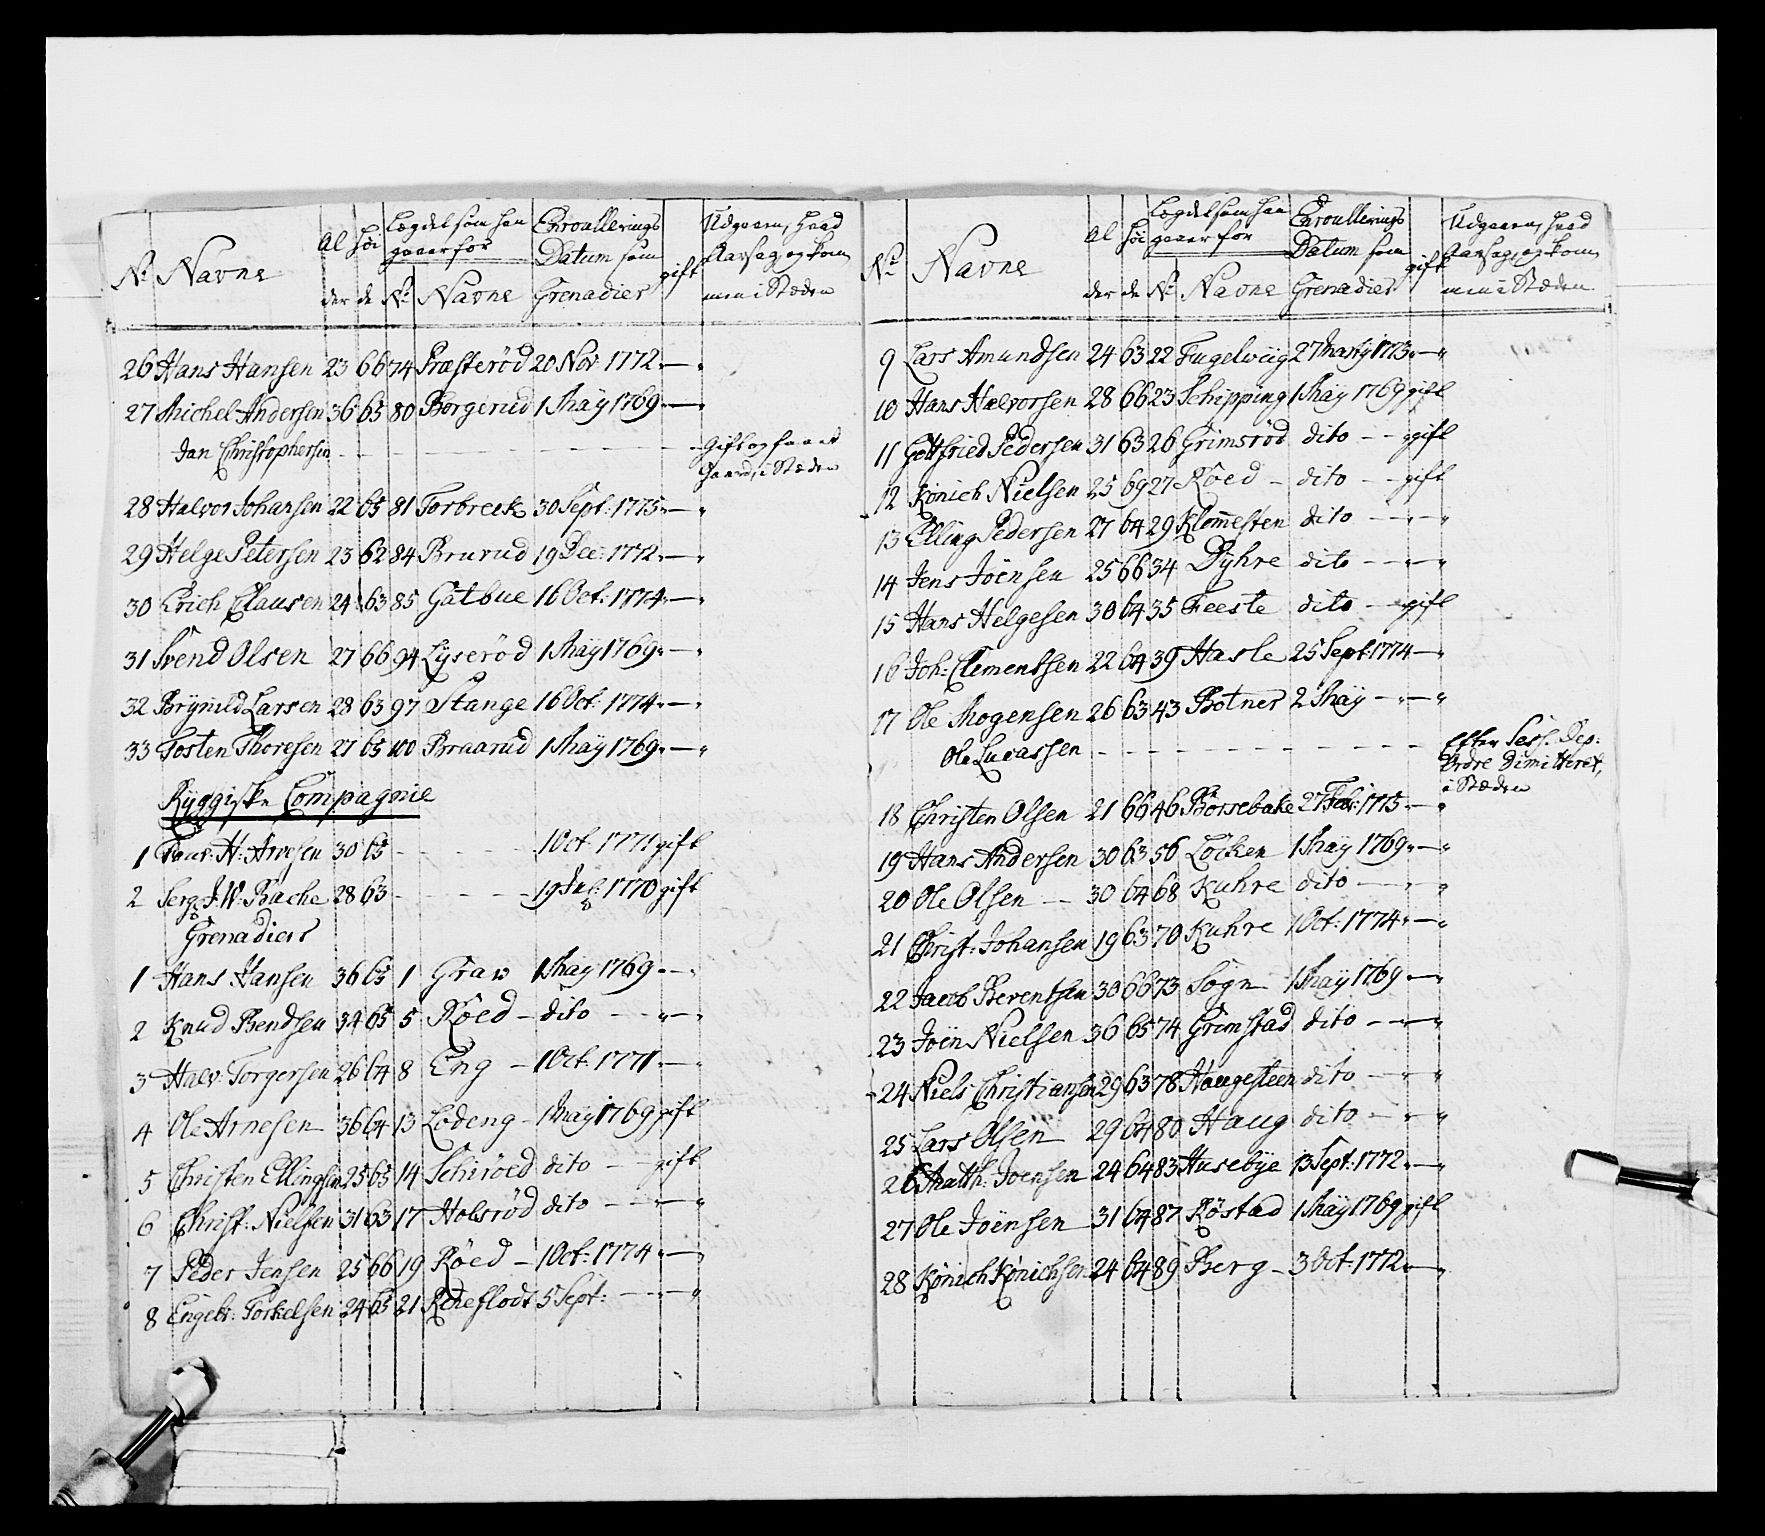 No Navne Al der Høi de Lægdet som han gaaer for No Navne Enroullerings Datum som Grenadier gift Udgaaen, hvad Aarsag, og kommen i Stæden
26 Hans Hansen 23 66 74 Præsteröd 20 Nov 1772 " — "
27 Michel Andersen 36 65 80 Borgerud 1 Maÿ 1769 " — "
Jan Christophersen - - - - - - - Gift og faaet
Gaard, i Stæden
28 Halvor Johansen 22 65 81 Torbreek 30 Sept: 1775 " — "
29 Helge Petersen 23 62 84 Brurud 19 Dec: 1772 " — "
30 Erich Clausen 24 63 85 Gatbue 16 Oct: 1774 " — "
31 Svend Olsen 27 66 94 Lÿseröd 1 Maÿ 1769 " — "
32 Brÿnild Larsen 28 63 97 Stange 16 Oct: 1774 " — "
33 Tosten Thoresen 27 65 100 Braarud 1 Maÿ 1769 " — "
Rÿggiske Compagnie
1 Four: H: Arvesen 30 65 - - - - 1 Oct. 1771 gift
2 Serg: J. W: Bache 28 63 - - - - 19 Jul: 1770 gift
Grenadiers
1 Hans Hansen 36 65 1 Grav 1 Maÿ 1769 " — "
2 Knud Bendsen 34 65 5 Röed — dito — " — "
3 Halv: Torgersen 26 64 8 Eng — 1 Oct. 1771 " — "
4 Ole Arnesen 36 64 13 Lodeng — 1 Maÿ 1769 gift
5 Christen Ellingsen 25 65 14 Schiröed dito — — gift
6 Christ: Nielsen 31 63 17 Holsröd dito — — " — "
7 Peder Jensen 25 66 19 Röed — 1 Oct: 1774 " — "
8 Engebr: Torkelsen 24 65 21 Kiheflodt 5 Sept: — — " — "
No Navne Al der Høi de Lægdet som han gaaer for No Navne Enroullerings Datum som Grenadier gift Udgaaen, hvad Aarsag, og kommen i Stæden
9 Lars Amundsen 24 63 22 Fugelviig 27 Martÿ 1773 " — "
10 Hans Halvorsen 28 66 23 Schipping 1 Maÿ 1769 gift
11 Gottfried Pedersen 31 63 26 Grimsröd dito — — gift
12 Könich Nielsen 25 69 27 Röed — dito — — gift
13 Elling Pedersen 27 64 29 Klommesten dito — — " — "
14 Jens Jöensen 25 66 34 Dÿhre dito — — " — "
15 Hans Helgesen 30 64 35 Feeste dito — — gift
16 Joh: Clementsen 22 64 39 Hasle 25 Sept: 1774 — "
17 Ole Mogensen 26 63 43 Botner 2 Maÿ — " — "
Ole Lucassen - - - - - - - Efter Sess. Dep:
Ordre Dimitteret,
i Stæden
18 Christen Olsen 21 66 46 Börrebake 27 Feb: 1775 — "
19 Hans Andersen 30 63 56 Löcken 1 Maÿ 1769 " — "
20 Ole Olsen — — 30 64 68 Kuhre dito — — " — "
21 Christ: Johansen 19 63 70 Kuhre 1 Oct: 1774 " — "
22 Jacob Berentsen 30 66 73 Sogn 1 Maÿ 1769 — "
23 Jöen Nielsen 36 65 74 Grimstad dito — — "
24 Niels Christiansen 29 63 78 Haugesteen dito — — " — "
25 Lars Olsen 29 64 80 Haug dito — " — "
26 Math: Joensen 24 64 83 Husebÿe 13 Sept: 1772 " — "
27 Ole Jöensen 31 64 87 Röstad 1 Maÿ 1769 gift
28 Könich Könichsen 24 64 89 Berg — 3 Oct. 1772 " — "